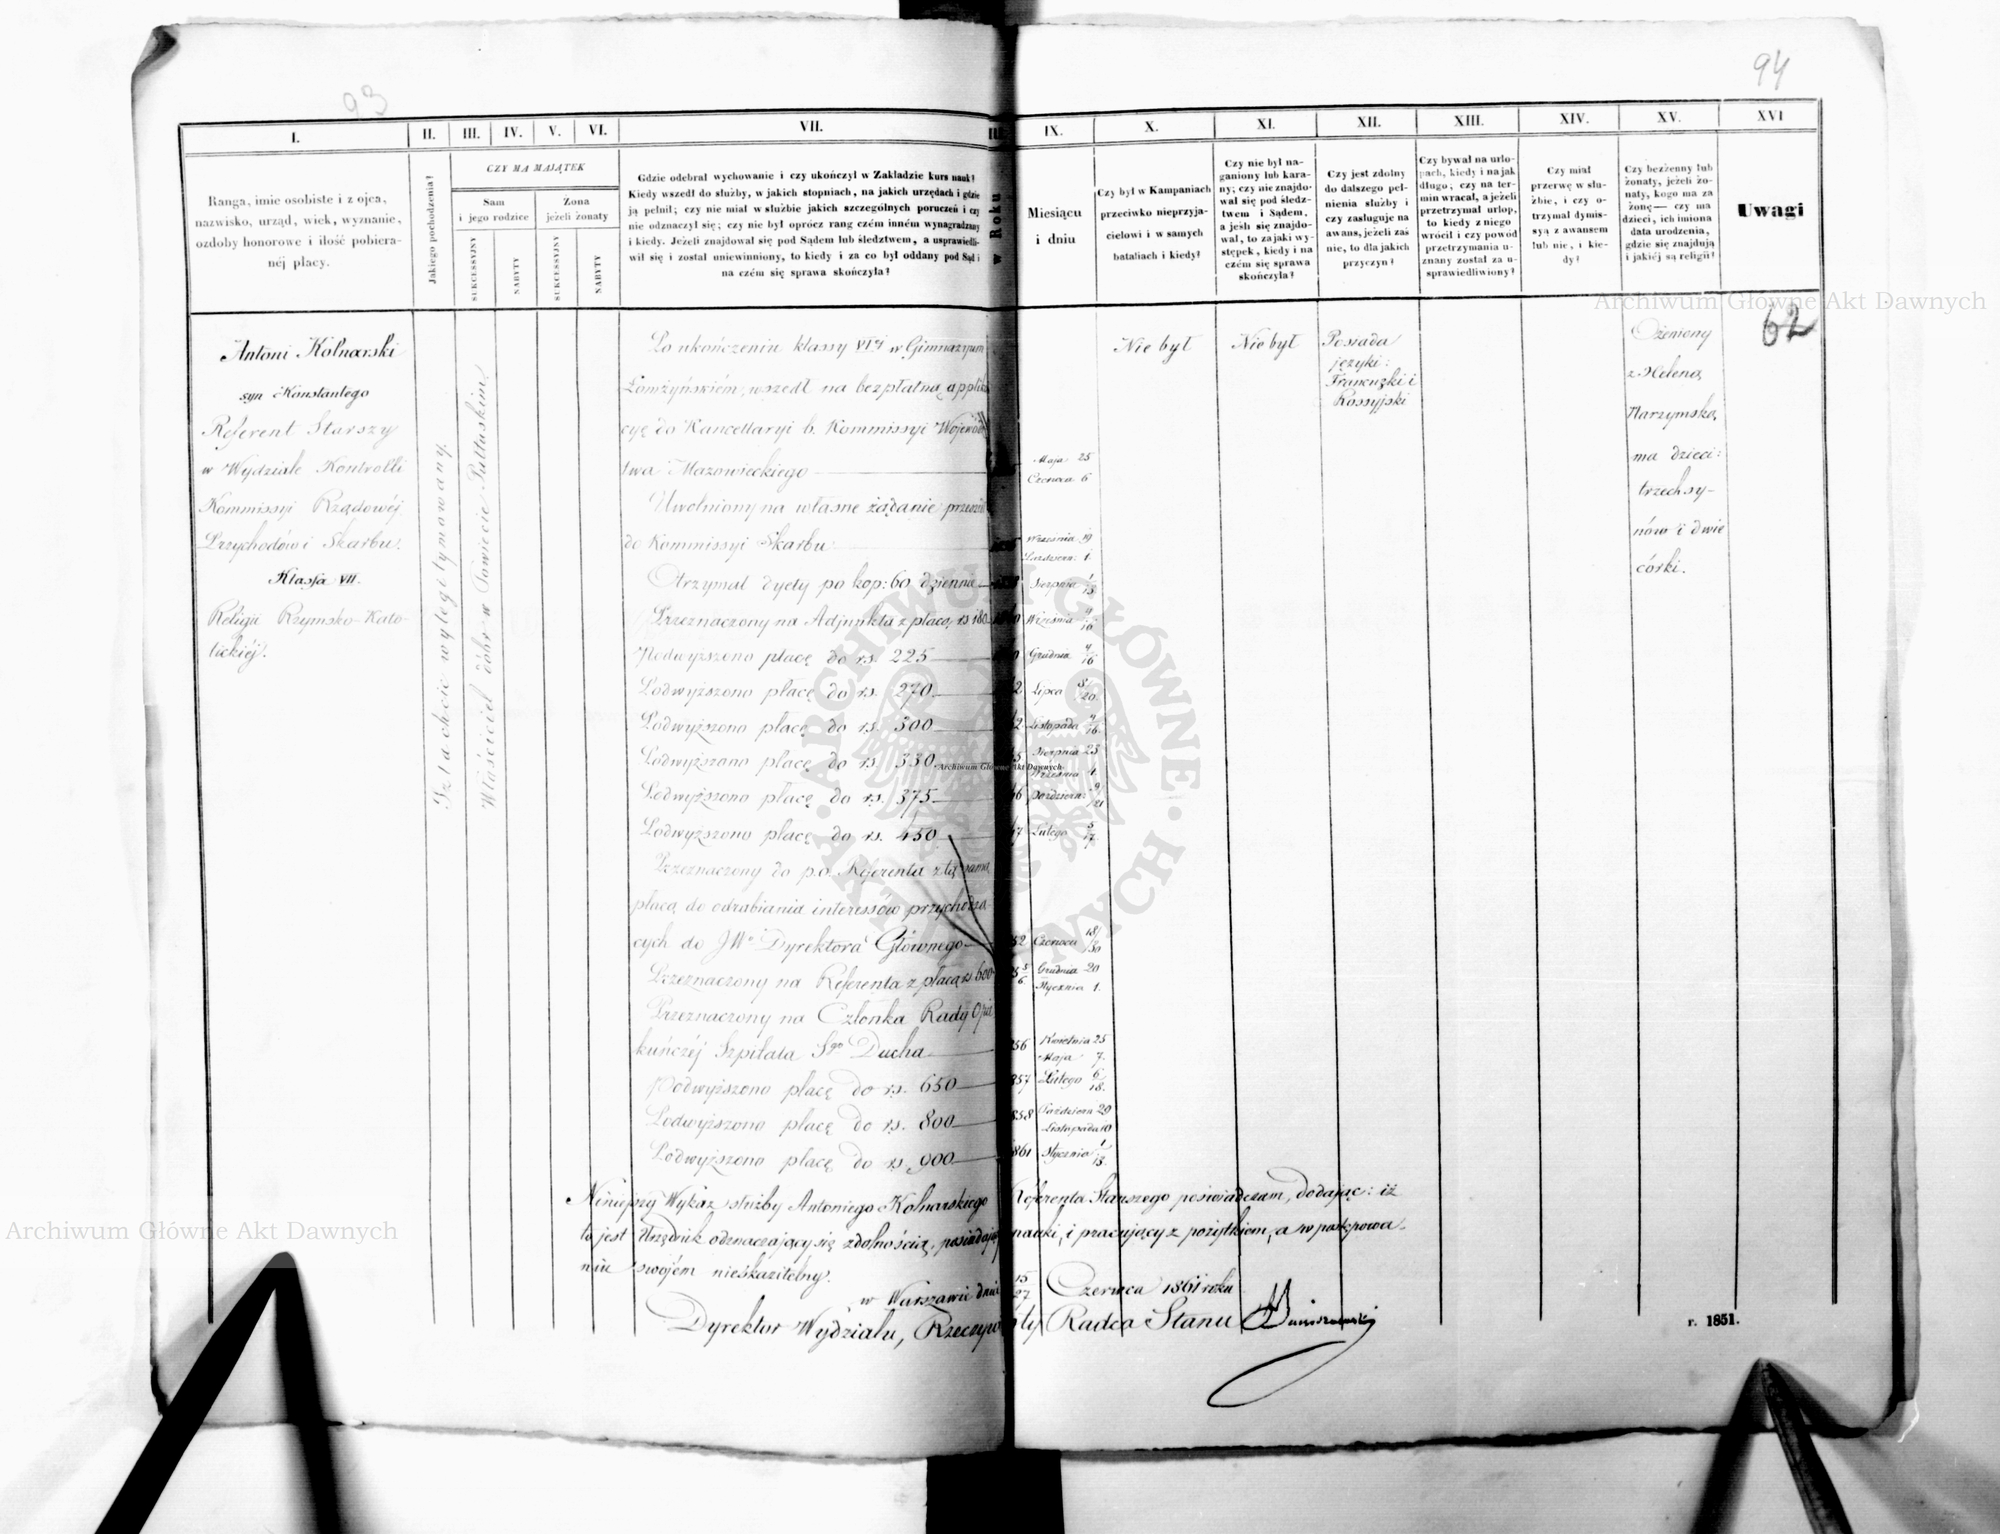 93
94
I.
II.
III.
IV.
V.
VI.
VII.
IX.
X.
XI.
XII.
XIII.
XIV.
XV.
XVI
Ranga, imie osobiste i z ojca,
nazwisko, urząd, wiek, wyznanie,
ozdoby honorowe i ilość pobiera-
néj płacy.
Jakiego pochodzenia?
CZY MA MAJĄTEK
Sam
i jego rodzice
Zona
jeżeli żonaty
SUKCESSYJNY
NABYTY
SUKCESSYJNY
NABYTY
Gdzie odebrał wychowanie i czy ukończył w Zakładzie kurs nauk?
Kiedy wszedł do służby, w jakich stopniach, na jakich urzędach i gdzie
ją pełnił; czy nie miał w służbie jakich szczególnych poruczeń i czy
nie odznaczył się; czy nie był oprócz rang czém inném wynagradzany
i kiedy. Jeżeli znajdował się pod Sądem lub śledztwem, a usprawiedli-
wił się i został uniewinniony, to kiedy i za co był oddany pod Sąd i
na czém się sprawa skończyła?
w Roku
Miesiącu
i dniu
Czy był w Kampaniach
przeciwko nieprzyja-
cielowi i w samych
bataliach i kiedy?
Czy nie był na-
ganiony lub kara-
ny; czy nie znajdo-
wał się pod śledz-
twem i Sądem,
a jeśli się znajdo-
wał, to za jaki wy-
stępek, kiedy i na
czém się sprawa
skończyła?
Czy jest zdolny
do dalszego peł-
nienia służby i
czy zasługuje na
awans, jeżeli zaś
nie, to dla jakich
przyczyn?
Czy bywał na urlo-
pach, kiedy i na jak
długo; czy na ter-
min wracał, a jeżeli
przetrzymał urlop,
to kiedy z niego
wrócił i czy powód
przetrzymania u-
znany został za u-
sprawiedliwiony?
Czy miał
przerwę w słu-
żbie, i czy o-
trzymał dymis-
syą z awansem
lub nie, i kie-
dy?
Czy bezżenny lub
żonaty, jeżeli żo-
naty, kogo ma za
żonę— czy ma
dzieci, ich imiona
data urodzenia,
gdzie się znajdują
i jakiéj są religii?
Uwagi
62
Antoni Kolnarski
syn Konstantego
Referent Starszy
w Wydziale Kontrolli
Kommissyi Rządowéj
Przychodów i Skarbu.
Klassa VII.
Religii Rzymsko-Kato-
lickiéj.
Szlachcic wylegitymowany.
Właściciel dóbr w Powiecie Pułtuskim
Po ukończeniu klassy VIéj w Gimnazyum
Łomżyńskiém, wszedł na bezpłatną applika
cyę do Kancellaryi b. Kommissyi Wojewódz
twa Mazowieckiego
Maja 25
Czerwca 6
Uwolniony na własne żądanie przeszedł
do Kommissyi Skarbu
Września 19
Paździer: 1.
Otrzymał dyety po kop: 60 dziennie
Sierpnia 1/13
Przeznaczony na Adjunkta z płacą rs 180
Września 4/16
Podwyższono płacę do rs. 225
Grudnia 4/16
Podwyższono płacę do rs. 270
Lipca 8/20
Podwyższono płacę do rs. 300
Listopada 4/16
Podwyższono płacę do rs. 330
Sierpnia 23
Września 4
Podwyższono płacę do rs. 375
46 Paździer: 9/21
Podwyższono płacę do rs. 450
47 Lutego 5/17
Przeznaczony do p.o. Referenta z tą samą
płacą do odrabiania interessów przychodzą-
cych do JWo Dyrektora Głównego
52 Czerwca 18/30
Przeznaczony na Referenta z płacą rs 600
Grudnia 20
Stycznia 1.
Przeznaczony na Członka Rady Opie
kuńczéj Szpitala Sgo Ducha
856 Kwietnia 25
Maja 7.
Podwyższono płacę do rs. 650
857 Lutego 6/18.
Podwyższono płacę do rs. 800
858 Paździer: 29
Listopada 10
Podwyższono płacę do rs 900
861 Stycznia 1/13.
Nie był
Nie był
Posiada
języki:
Francuzki i
Rossyjski
Ożeniony
z Heleną
Narzymską,
ma dzieci:
trzech sy-
nów i dwie
córki.
Niniejszy Wykaz służby Antoniego Kolnarskiego Referenta Starszego poświadczam, dodając: iż
to jest Urzędnik odznaczający się zdolnością, posiadający nauki, i pracujący z pożytkiem, a w postępowa-
niu swojém nieskazitelny.
w Warszawie dnia 15/27 Czerwca 1861 roku
Dyrektor Wydziału, Rzeczywisty Radca Stanu
r. 1851.
Archiwum Główne Akt Dawnych
Archiwum Główne Akt Dawnych
Archiwum Główne Akt Dawnych
ARCHIWUM GŁÓWNE AKT DAWNYCH